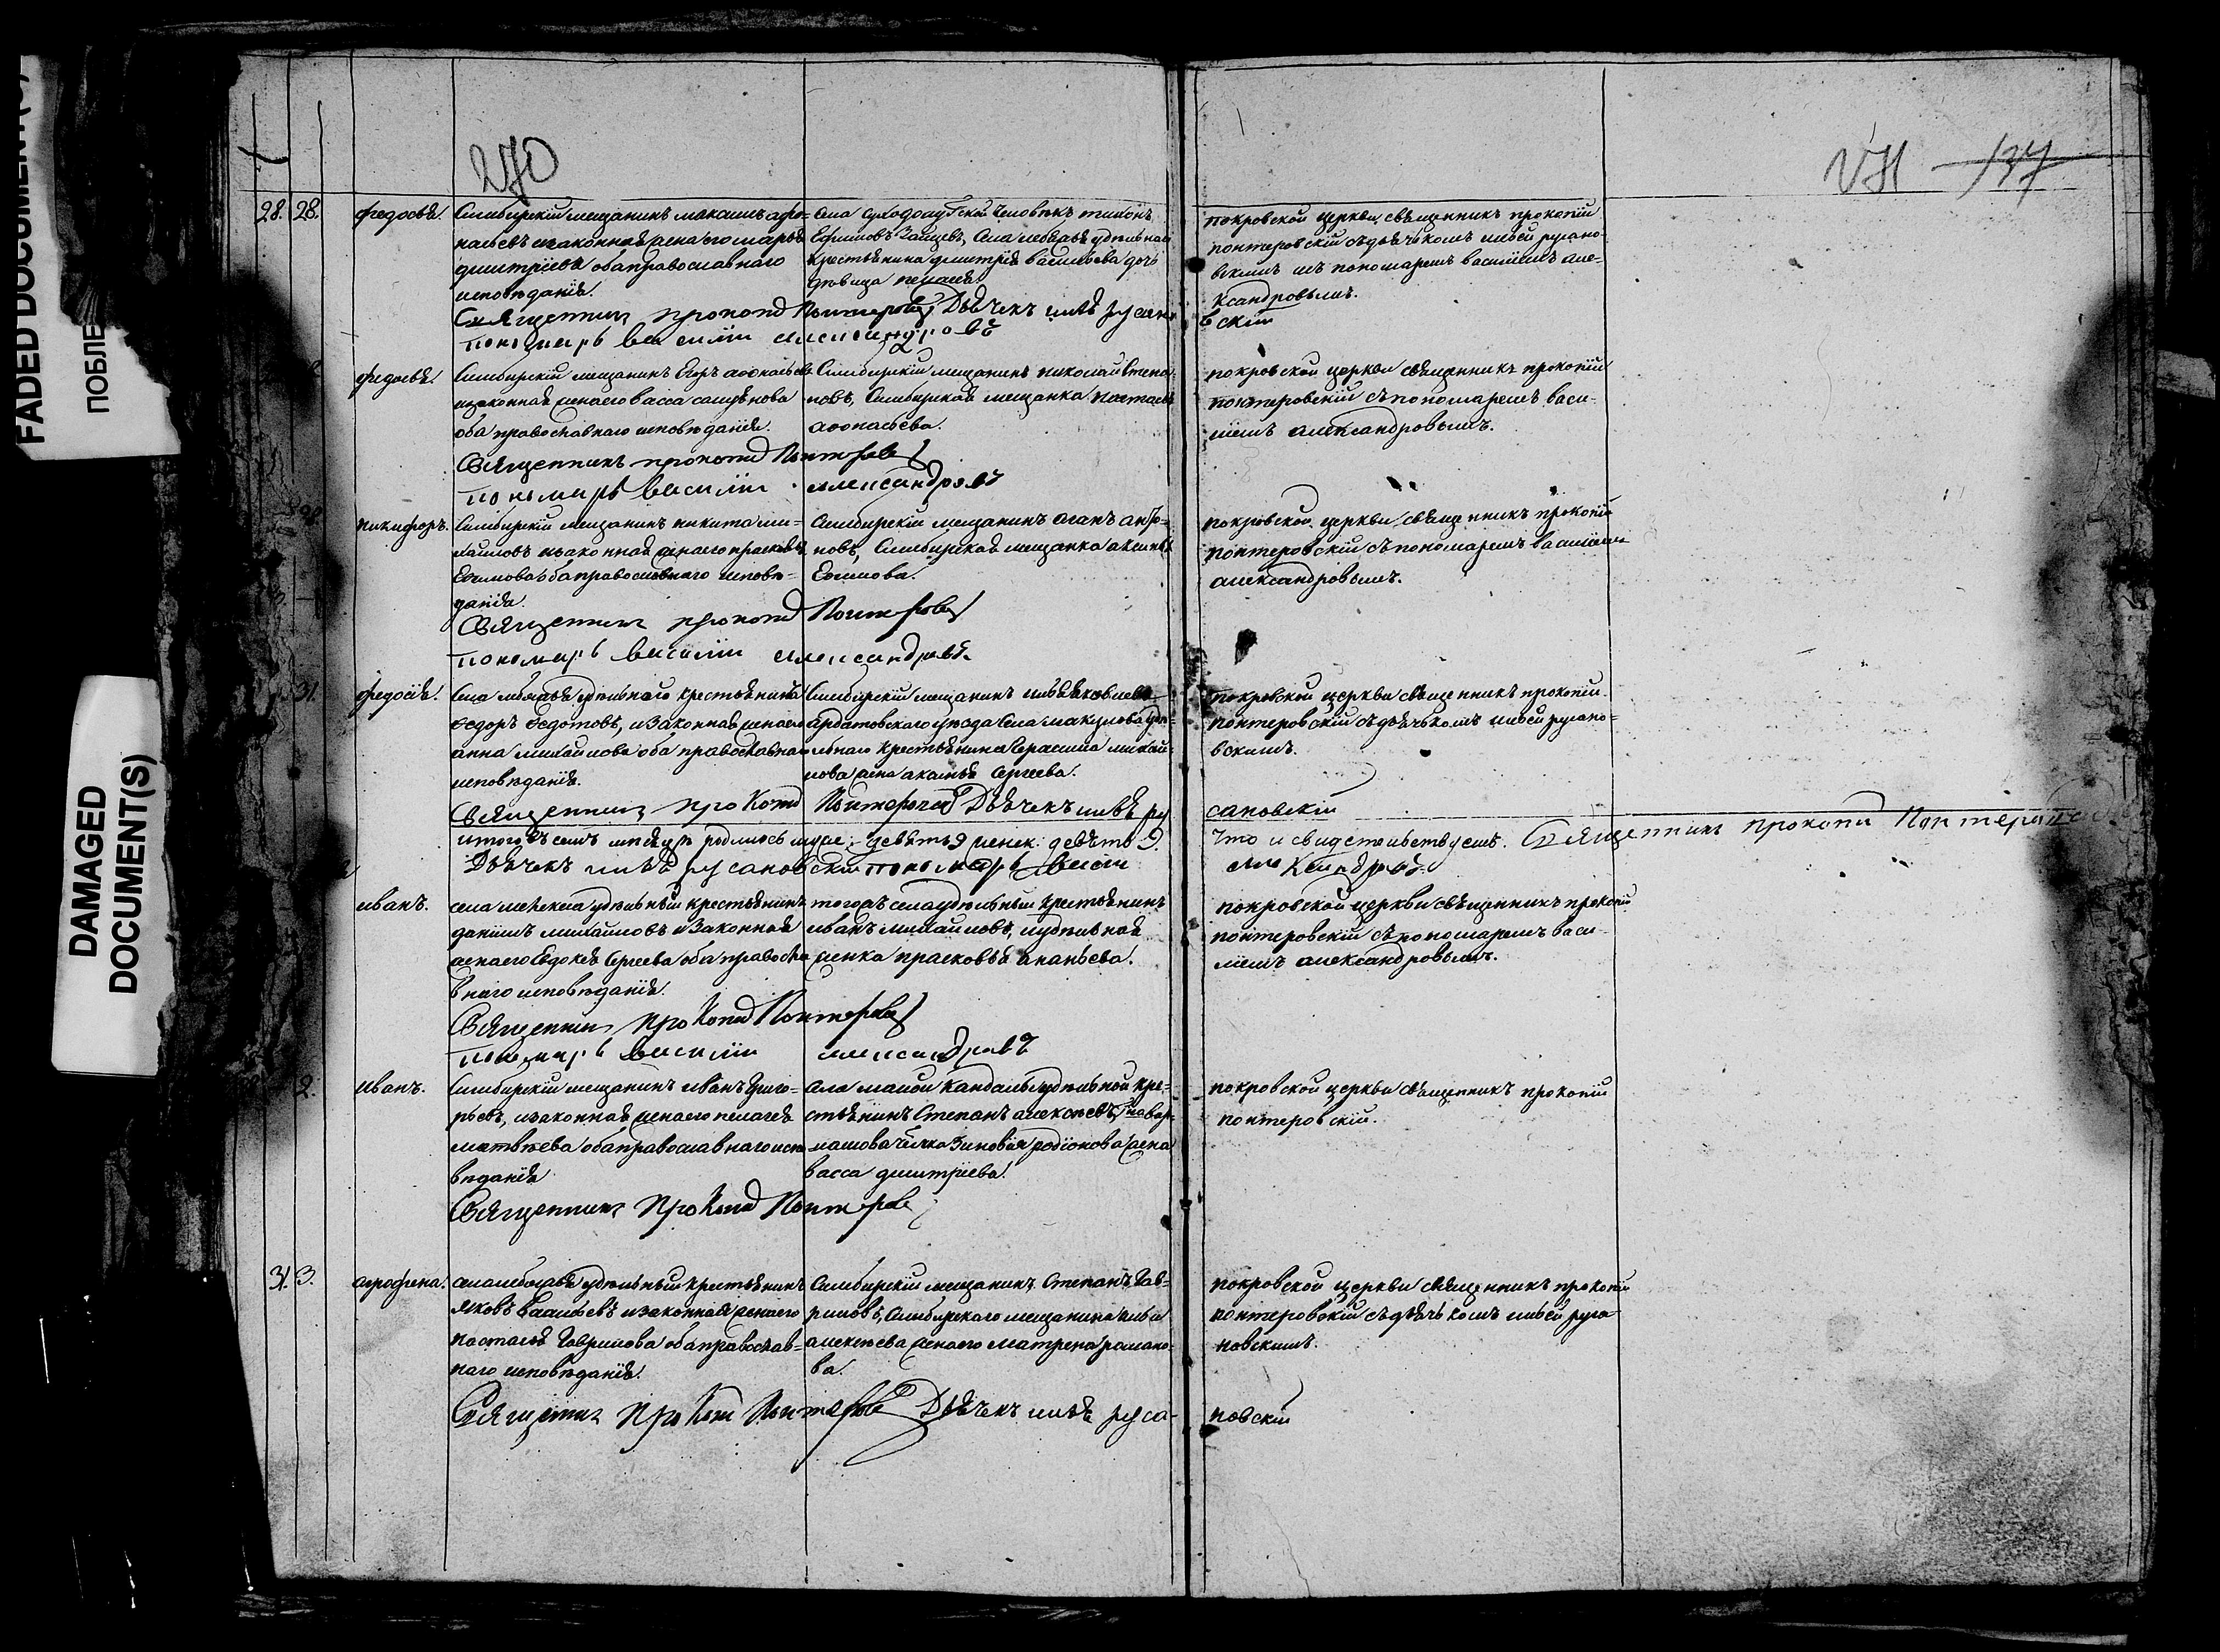 FADED DOCUMENT(S)
ПОБЛЕ
DAMAGED
DOCUMENT(S)
270
271 137
28. 28. федосья. Симбирскій мещанинъ максимъ афо-
насьевъ изаконная жена его марья
дмитріева оба православнаго
исповѣданія.
Села Ефимовъ Зайцевъ, Села удѣльнаго
крестьянина дмитрія васильева дочь
дѣвица пелагея.
покровской церкви священникъ прокопій
понтеровскій съ дьячькомъ ильей русано-
вскимъ иъ пономаремъ василіемъ але-
ксандровымъ.
Священникъ прокопій Понтеровск Дьячекъ илья русано
вскій
пономарь василій александровъ
федосья. Симбирскій мещанинъ Егоръ афонасьевъ
изаконная жена его васса самуйлова
оба православнаго исповѣданія.
Симбирскій мещанинъ николай Степа-
новъ, Симбирская мещанка настасья
афонасьева.
покровской церкви священникъ прокопій
понтеровскій съ пономаремъ васи-
ліемъ александровымъ.
Священникъ прокопій Понтеровс
пономарь василій александровъ
никифоръ. Симбирскій мещанинъ никита ми-
хайловъ изаконная жена его прасковья
Ефимова оба православнаго исповѣ-
данія.
Симбирскій мещанинъ
новъ, Симбирская мещанка аксинья
Ефимова.
покровской церкви священникъ прокопій
понтеровскій съ пономаремъ василіемъ
александровымъ.
Священникъ прокопій Понтеровс
пономарь василій александровъ.
31. федосія. Села удѣльнаго крестьянина
Федоръ Федотовъ, изаконная жена его
анна михайлова оба православнаго
исповѣданія.
Симбирскій мещанинъ илья яковлевъ
Ардатовскаго уѣзда Села удѣ-
льнаго крестьянина Герасима михай-
лова жена Сергеева.
покровской церкви священникъ прокопій
понтеровскій съ дьячькомъ ильей русано-
вскимъ.
Священникъ прокопій Понтеровск Дьячекъ илья ру
сановскій
итого въ семъ мѣсяцѣ родилось муже: девять 9 женск: девять 9.
что и свидетельствуемъ. Священникъ прокопій Понтеровск
Дьячекъ илья русановскій пономарь васили
александровъ.
иванъ. села удѣльный крестьянинъ
данилъ михайловъ изаконная
жена его Евдокея Сергеева оба правосла
внаго исповѣданія.
тогожъ села удѣльный крестьянинъ
иванъ михайловъ, иудѣльная
женка прасковья ананьева.
покровской церкви священникъ прокопій
понтеровскій съ пономаремъ васи-
ліемъ александровымъ.
Священникъ прокопій Понтеровс
пономарь василій александровъ
2. иванъ. Симбирскій мещанинъ иванъ Григо-
рьевъ, изаконная жена его пелагея
матвѣева оба православнаго испо
вѣданія
Села малой Кандалы удѣльной кре-
стьянинъ Степанъ алексѣевъ,
Зиновія родіонова жена
васса дмитріева.
покровской церкви священникъ прокопій
понтеровскій.
Священникъ прокопій Понтеровс
31. 3. агрофена. села удѣльный крестьянинъ
яковъ васильевъ изаконная жена его
настасья Гаврилова оба православ-
наго исповѣданія.
Симбирскій мещанинъ Степанъ Гав-
риловъ, Симбирскаго мещанина ильи
алексѣева жена его матрена романо-
ва.
покровской церкви священникъ прокопій
понтеровскій съ дьячькомъ ильей руса
новскимъ.
Священникъ прокопій Понтеровс Дьячекъ илья руса-
новскій